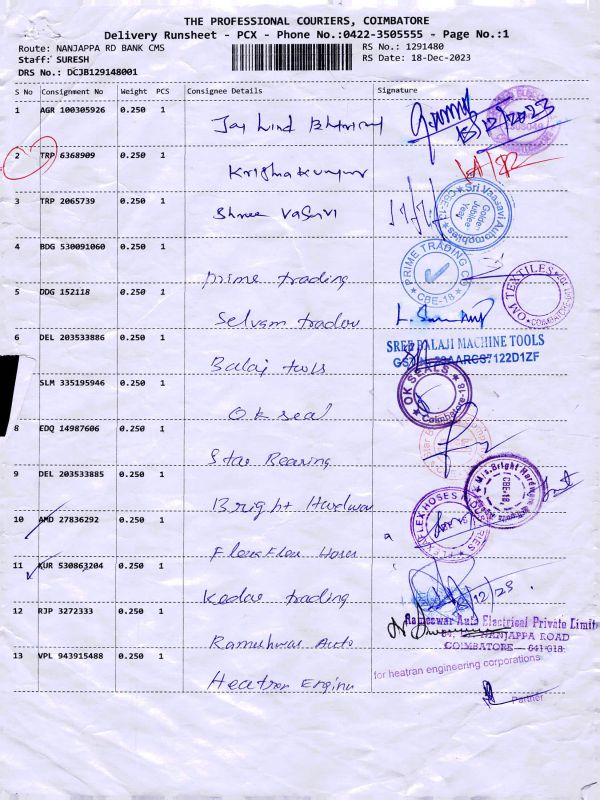 THE PROFESSIONAL COURIERS, COIMBATORE
Delivery Runsheet - PCX - Phone No.:0422-3505555 - Page No.:1
Route: NANJAPPA RD BANK CMS
RS No.: 1291480
Staff: SURESH
RS Date: 18-Dec-2023
DRS No.: DCJB129148001
S No Consignment No Weight PCS Consignee Details Signature
1 AGR 100305926 0.250 1
Jai Hind
18/12/2023
2 TRP 6368909 0.250 1
3 TRP 2065739 0.250 1
Shree Vasavi
Sri Vaasavi Automobiles
Golden Jubilee Year
CBE-18
4 BDG 530091060 0.250 1
Prime trading
PRIME TRADING CO
CBE-18
5 DDG 152118 0.250 1
Selvam trador
OM TEXTILES
COIMBATORE
6 DEL 203533886 0.250 1
Balaj tools
SREE BALAJI MACHINE TOOLS
SLM 335195946 0.250 1
OK seal
OK SEALS
Coimbatore-18
8 EDQ 14987606 0.250 1
Star Bearing
9 DEL 203533885 0.250 1
Bright Hardwar
M/s. Bright Hardware
CBE-18.
10 AMD 27836292 0.250 1
FlexFlex Hoses
11 KUR 530863204 0.250 1
Kedar trading
12 RJP 3272333 0.250 1
Rameshwar Auto
Rameswar Auto Electrical Private Limit
NANJAPPA ROAD
COIMBATORE - 641 018.
13 VPL 943915488 0.250 1
Heatron Engine
for heatran engineering corporations
Partner